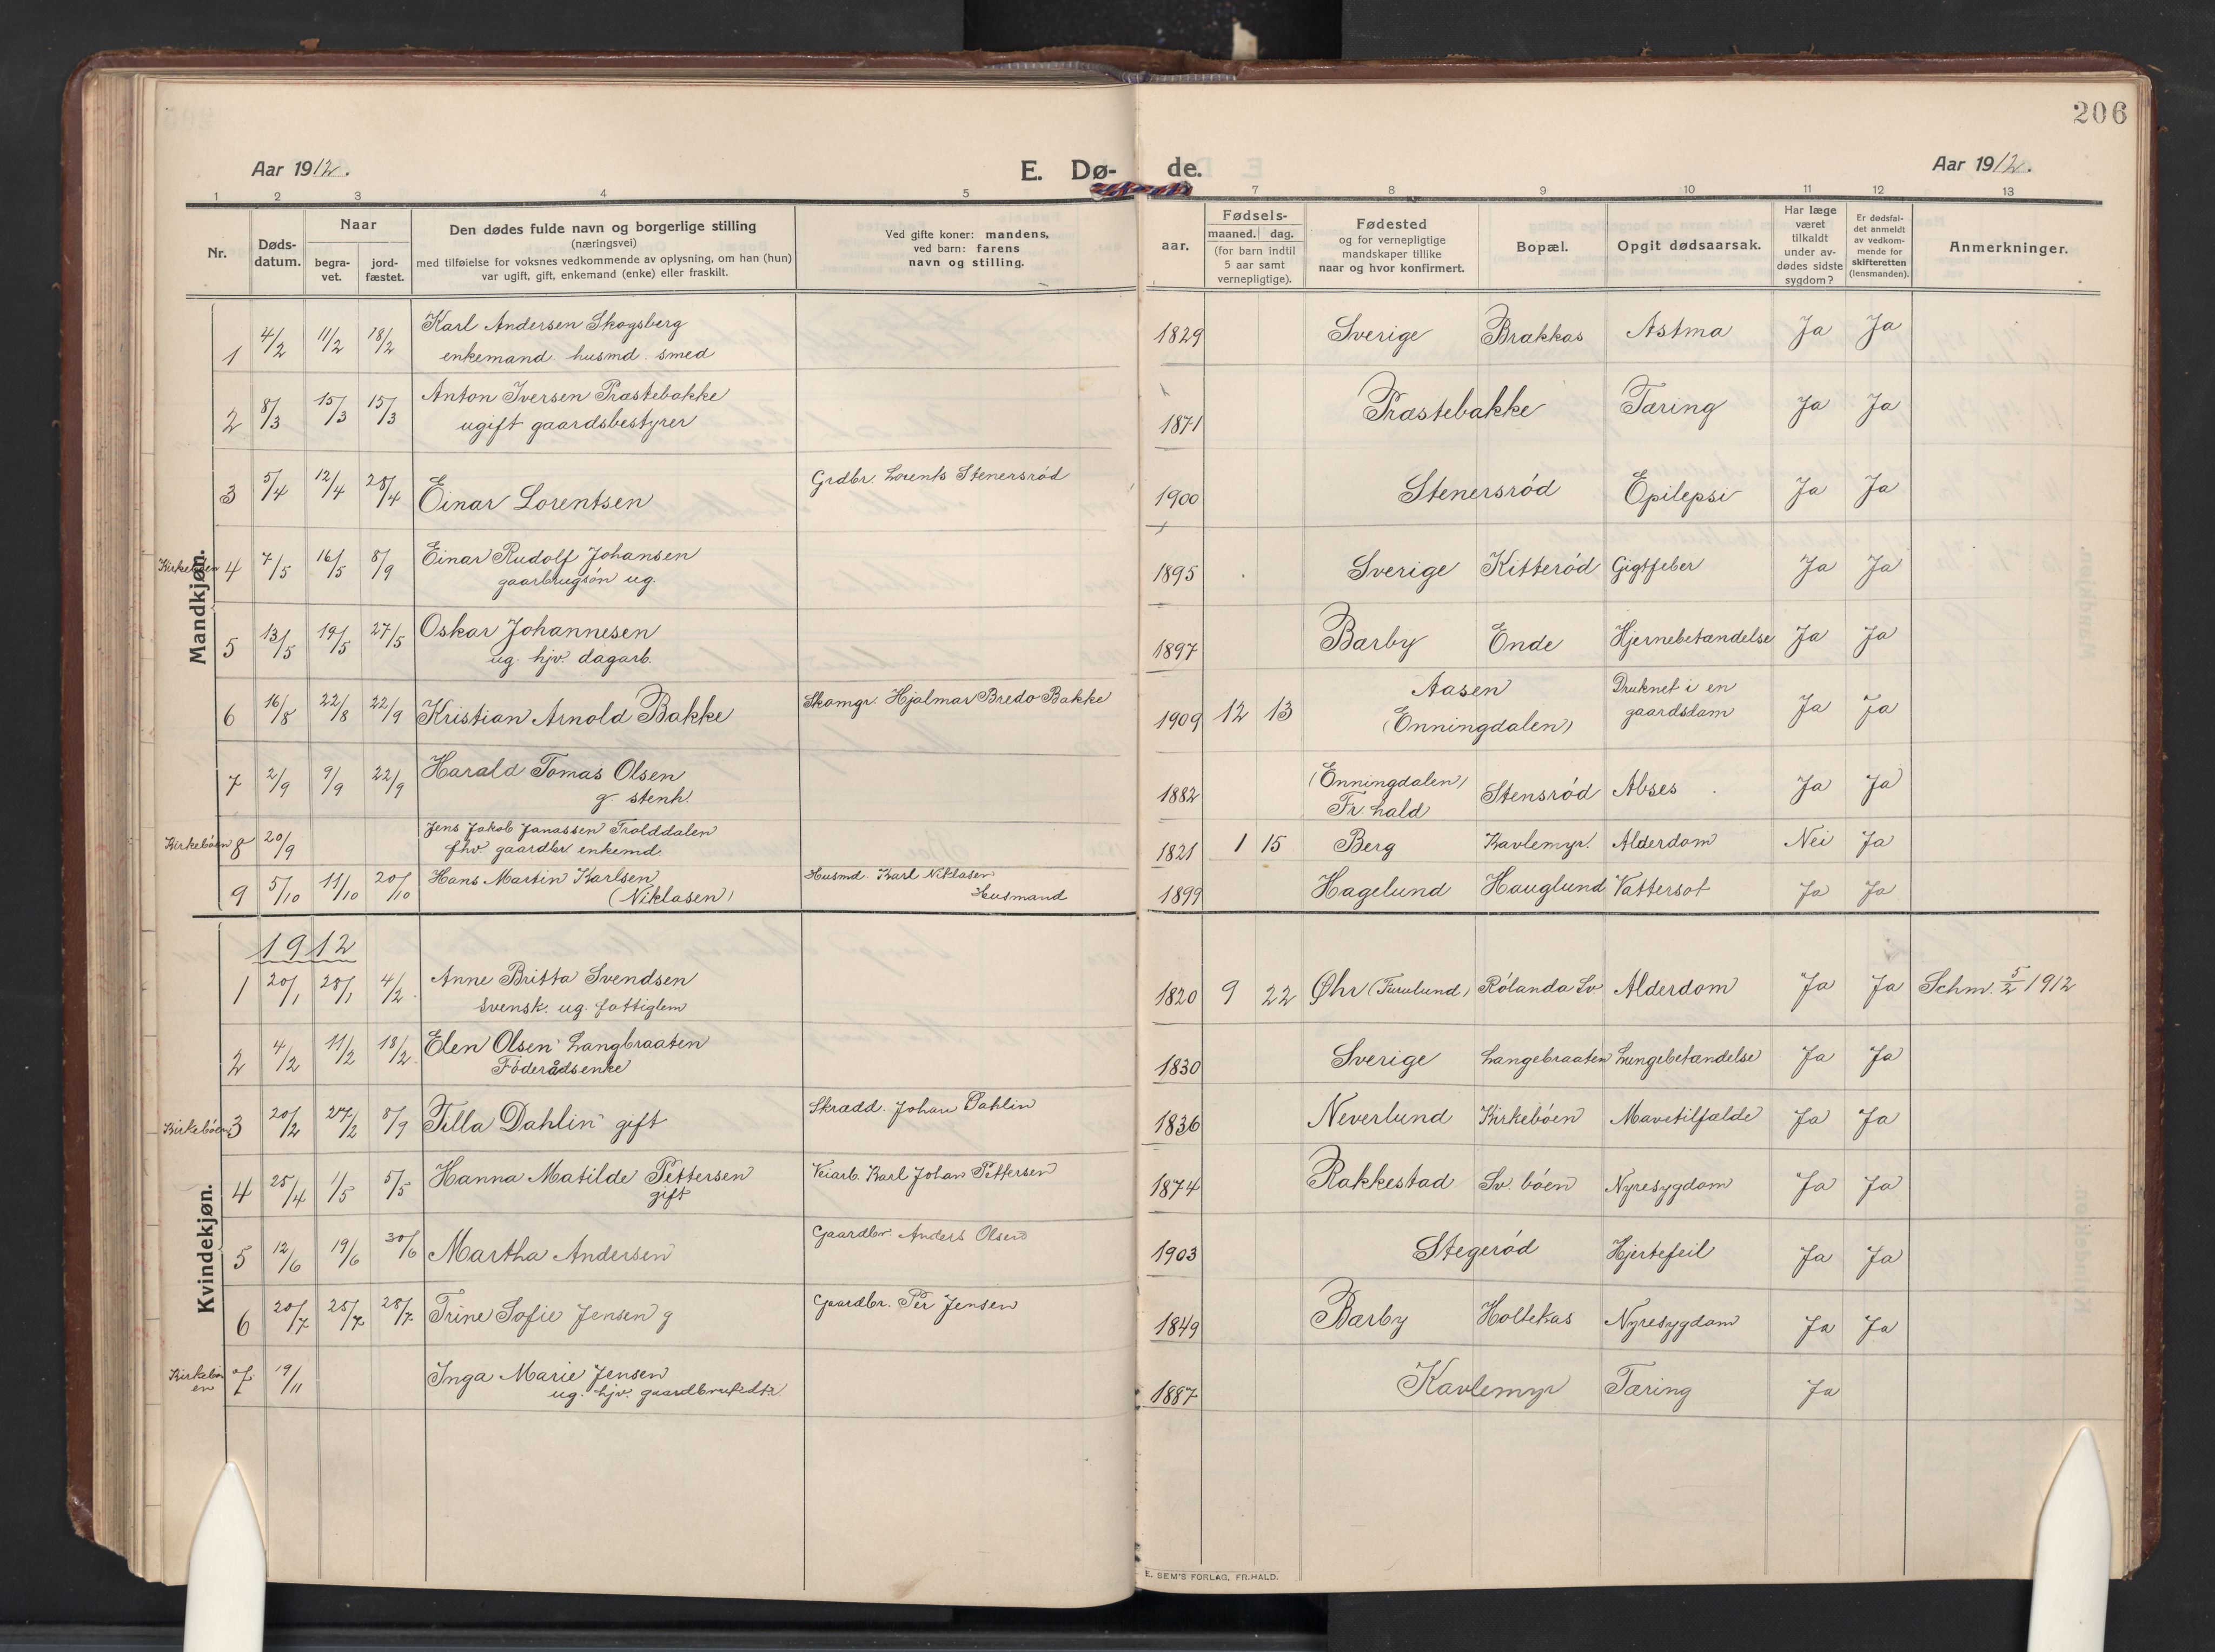 206
Aar 1912.
E. Dø-
de.
Aar 1912.
1 2 3 4 5
7 8 9 10 11 12 13
Nr.
Døds-
datum.
Naar
begra-
vet.
jord-
fæstet.
Den dødes fulde navn og borgerlige stilling
(næringsvei)
med tilføielse for voksnes vedkommende av oplysning, om han (hun)
var ugift, gift, enkemand (enke) eller fraskilt.
Ved gifte koner: mandens,
ved barn: farens
navn og stilling.
Fødsels-
aar.
maaned. dag.
(for barn indtil
5 aar samt
vernepligtige).
Fødested
og for vernepligtige
mandskaper tillike
naar og hvor konfirmert.
Bopæl.
Opgit dødsaarsak.
Har læge
været
tilkaldt
under av-
dødes sidste
sygdom?
Er dødsfal-
det anmeldt
av vedkom-
mende for
skifteretten
(lensmanden).
Anmerkninger.
Mandkjøn.
1 4/2 11/2 18/2 Karl Andersen Skogsberg
enkemand. husmd. smed
1829 Sverige Brækkas Astma Ja Ja
2 8/3 15/3 15/3 Anton Iversen Præstebakke
ugift gaardsbestyrer
1871 Præstebakke Tæring Ja Ja
3 5/4 12/4 28/4 Einar Lorentsen Grdbr. Lorents Stenersröd
1900 Stenersröd Epilepsi Ja Ja
4 7/5 16/5 8/9 Einar Rudolf Johansen
gaarbrugsön ug.
1895 Sverige Kitteröd Gigtfeber Ja Ja
5 13/5 19/5 27/5 Oskar Johannesen
ug. hjv. dagarb.
1897 Bærby Ende Hjernebetændelse Ja Ja
6 16/8 22/8 22/9 Kristian Arnold Bakke Skomgr. Hjalmar Bredo Bakke
1909 12 13 Aasen
(Enningdalen)
Druknet i en
gaardsdam
Ja Ja
7 2/9 9/9 22/9 Harald Tomas Olsen
g. stenh.
1882 (Enningdalen)
Fr. hald
Stensröd Abses Ja Ja
Kirkebóen 8 20/9 Jens Jakob Janassen Trolddalen
fhv. gaardbr. enkemd.
1821 1 15 Berg Kavlemyr. Alderdom Nei Ja
9 5/10 11/10 20/10 Hans Martin Karlsen
(Niklasen)
Husmd. Karl Niklasen
Husmand
1899 Hagelund Hauglund Vattersot Ja Ja
Kvindekjøn.
1912
1 20/1 28/1 4/2 Anne Britta Svendsen
svensk. ug. fattiglem
1820 9 22 Øhr (Furulund) Rölanda Sv Alderdom Ja Ja Schm. 5/2 1912
2 4/2 11/2 18/2 Elen Olsen Langbraaten
Föderådsenke
1830 Sverige Langebraaten Lungebetændelse Ja Ja
Kirkebóen 3 20/2 27/2 8/9 Tilla Dahlin gift Skrædd. Johan Dahlin
1836 Neverlund Kirkebóen Mavetilfælde Ja Ja
4 25/4 1/5 5/5 Hanna Matilde Pettersen
gift
Veiarb. Karl Johan Pettersen
1874 Rakkestad Sv. bóen Nyresygdom Ja Ja
5 12/6 19/6 30/6 Martha Andersen Gaardbr. Anders Olsen
1903 Stegeröd Hjertefeil Ja Ja
6 20/7 25/7 28/7 Trine Sofie Jensen g Gaardbr. Per Jensen
1849 Bærby Holtekas Nyresygdom Ja Ja
7 19/11 Inga Marie Jensen
ug. hjv.
1887 Kavlemyr Tæring Ja
E. SEM'S FORLAG, FR.HALD.